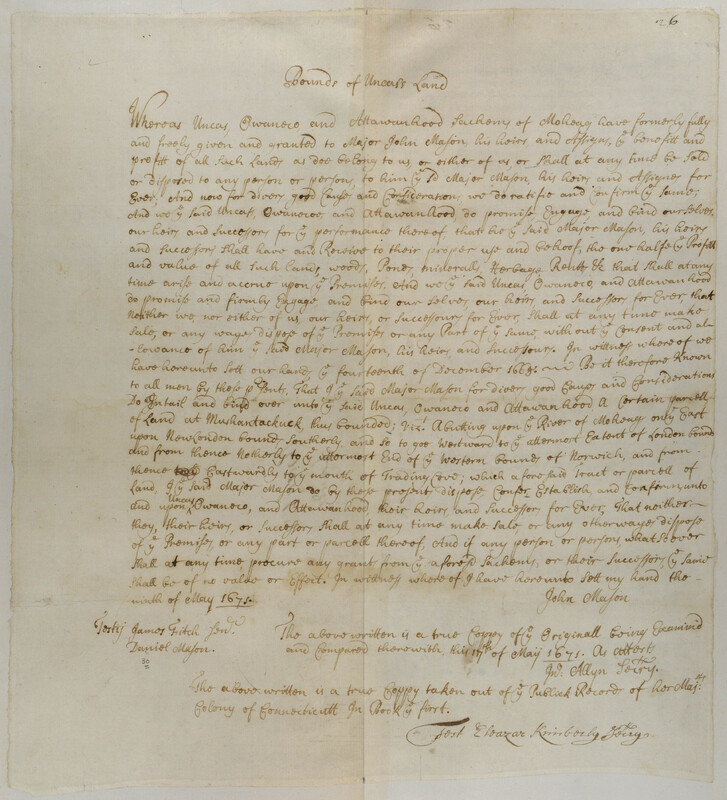 26
Bounds of Uncass Land
Whereas Uncas, Owaneco and Attawanhood Sachems of Moheag have formerly fully
and freely given and granted to Major John Mason, his heirs and Assigns, ye benefitt and
profitt of all Such Lands as doe belong to us or either of us, or Shall at any time be Sold
or disposed to any person or persons, to him ye sd Major Mason, his heirs and Assignes for
Ever, And now for divers good Causes and Consideration, we do ratifie and confirm ye Same;
And we ye Said Uncas, Owanecoe, and Attawanhood do promise Engage, and bind our Selves,
our heirs and Successors for ye performance thereof that he ye Said Major Mason, his heirs
and Successors Shall have and Receive to their proper use and behoof, the one halfe ye Profitt
and value of all Such lands, woods, Ponds, minerals, Herbage Rents &c that Shall at any
time arise and accrue upon ye Premises, And we ye Said Uncas, Owaneco, and Attawanhood
do promis and firmly Engage, and bind our Selves, our heirs, and Successors for Ever, that
Neither we, nor either of us, our heirs, or Successours for Ever, Shall at any time make
Sale, or any wayes dispose of ye Premises or any Part of ye Same, without ye Consent and al-
-lowance of him ye Said Major Mason, his heirs and Successours. In witness where of we
have hereunto Sett our hands ye fourteenth of December 1669. Be it therefore Known
to all men by these pSents, That I ye Said Major Mason for divers good Causes and Considerations
Do Entail and bind over unto ye Said Uncas, Owaneco and Attawanhood A Certain parcell
of Land at Mushantackuck, thus bounded, Viz: Abutting upon ye River of Moheag only East
upon Newlondon bounds Southerly, and So to goe Westward to ye uttermost Extent of London bounds
and from thence Notherly to ye uttermost End of ye Western bounds of Norwich, and from
thence Eastwardly to ye mouth of Trading Cove; which afore Said Tract or parcel of
Land, I ye Said Major Mason do by these presents dispose, Confer, Establish, and Confirm, unto
And upon Uncas, Owaneco, and Attawanhood, their heirs and Successors for Ever, That neither
they, their heirs, or Successors Shall at any time make Sale or any otherwayes dispose
of ye Premises, or any part or parcell thereof, And if any person or persons whatsoever
Shall at any time procure any grant from ye aforesd Sachems, or their Successors ye Same
Shall be of no value or Effect. In wittness where of I have hereunto Sett my hand the
ninth of May 1671.
John Mason
Testis James Fitch Senr.
Daniel Mason.
The above written is a true Coppy of ye Originall being Examined
and Compared therewith, this 17th of Maij 1671. As attests
Jno. Allyn Secry.
The above written is a true Coppy taken out of ye Publick Records of her Majties
Colony of Connecticutt In Book ye first.
Test Eleazar Kimberly Secry.